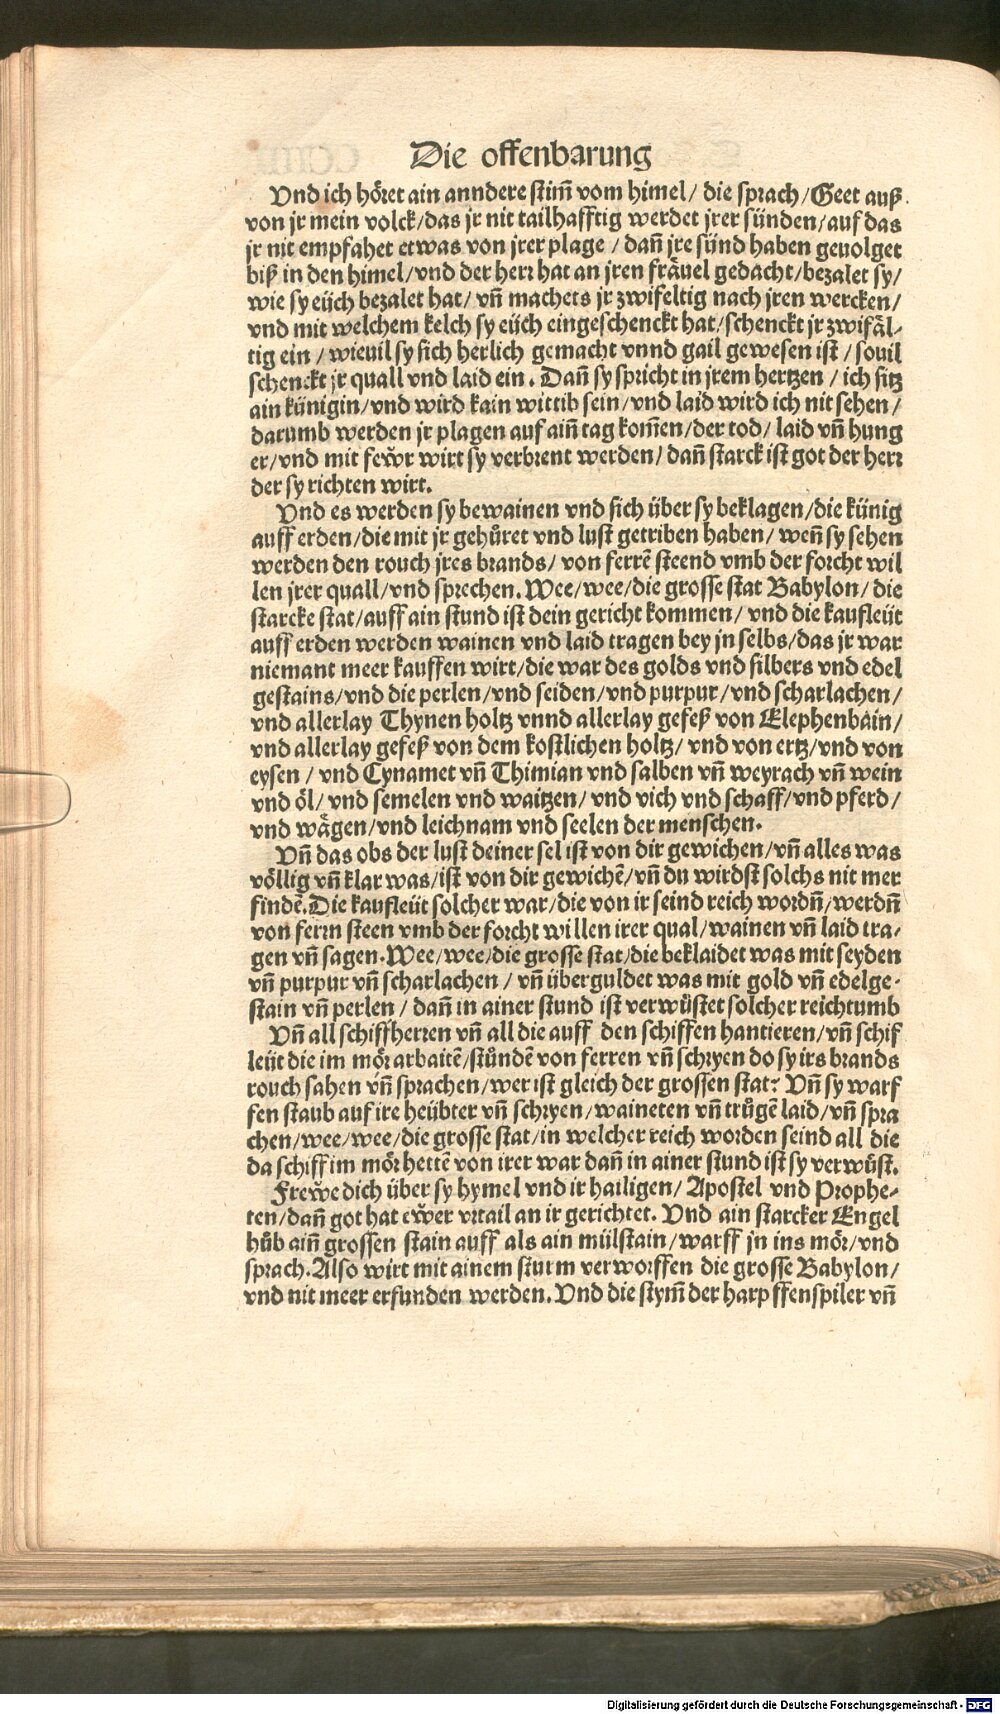 Die offenbarung
Vnd ich höret ain anndere stim̃ vom himel/ die sprach/Geet auß
von jr mein volck/das jr nit tailhafftig werdet jrer sünden/auf das
jr nit empfahet etwas von jrer plage / dañ jre sünd haben geuolget
biß in den himel/vnd der herr hat an jren fräuel gedacht/bezalet sy/
wie sy eüch bezalet hat/ vñ machets jr zwifeltig nach jren wercken/
vnd mit welchem kelch sy eüch eingeschenckt hat/schenckt jr zwifäl-
tig ein / wieuil sy sich herlich gemacht vnnd gail gewesen ist / souil
schenckt jr quall vnd laid ein. Dañ sy spricht in jrem hertzen / ich sitz
ain künigin/vnd wird kain wittib sein/vnd laid wird ich nit sehen/
darumb werden jr plagen auf aiñ tag kom̃en/der tod/ laid vñ hung
er/vnd mit fewͤr wirt sy verbrent werden/ dañ starck ist got der herr
der sy richten wirt.
Vnd es werden sy bewainen vnd sich über sy beklagen/die künig
auff erden/die mit jr gehůret vnd lust getriben haben/ weñ sy sehen
werden den rouch jres brands/ von ferrẽ steend vmb der forcht wil
len jrer quall/vnd sprechen. Wee/wee/die grosse stat Babylon/ die
starcke stat/auff ain stund ist dein gericht kommen/ vnd die kaufleüt
auff erden werden wainen vnd laid tragen bey jn selbs/das jr war
niemant meer kauffen wirt/die war des golds vnd silbers vnd edel
gestains/vnd die perlen/vnd seiden/vnd purpur/vnd scharlachen/
vnd allerlay Thynen holtz vnnd allerlay gefeß von Elephenbain/
vnd allerlay gefeß von dem kostlichen holtz/ vnd von ertz/vnd von
eysen / vnd Cynamet vñ Thimian vnd salben vñ weyrach vñ wein
vnd öl/ vnd semelen vnd waitzen/ vnd vich vnd schaff/vnd pferd/
vnd wägen/vnd leichnam vnd seelen der menschen.
Vñ das obs der lust deiner sel ist von dir gewichen/vñ alles was
völlig vñ klar was/ist von dir gewichẽ/vñ du wirdst solchs nit mer
findẽ.Die kaufleüt solcher war/die von ir seind reich wordñ/werdñ
von ferrn steen vmb der forcht willen irer qual/wainen vñ laid tra-
gen vñ sagen.Wee/wee/die grosse stat/die beklaidet was mit seyden
vñ purpur vñ scharlachen / vñ überguldet was mit gold vñ edelge-
stain vñ perlen / dañ in ainer stund ist verwüstet solcher reichtumb
Vñ all schiffherren vñ all die auff den schiffen hantieren/vñ schif
leüt die im mör arbaitẽ/stůndẽ von ferren vñ schryen do sy irs brands
rouch sahen vñ sprachen/wer ist gleich der grossen stat? Vñ sy warf
fen staub auf ire heübter vñ schryen/waineten vñ trůgẽ laid/vñ spra
chen/wee/wee/die grosse stat/in welcher reich worden seind all die
da schiff im mör hettẽ von irer war dañ in ainer stund ist sy verwüst.
Frewͤe dich über sy hymel vnd ir hailigen/ Apostel vnd Prophe-
ten/dañ got hat ewͤer vrtail an ir gerichtet. Vnd ain starcker Engel
hůb aiñ grossen stain auff als ain mülstain/warff jn ins mör/vnd
sprach.Also wirt mit ainem sturm verworffen die grosse Babylon/
vnd nit meer erfunden werden. Vnd die stym̃ der harpffenspiler vñ
Digitalisierung gefördert durch die Deutsche Forschungsgemeinschaft - DFG